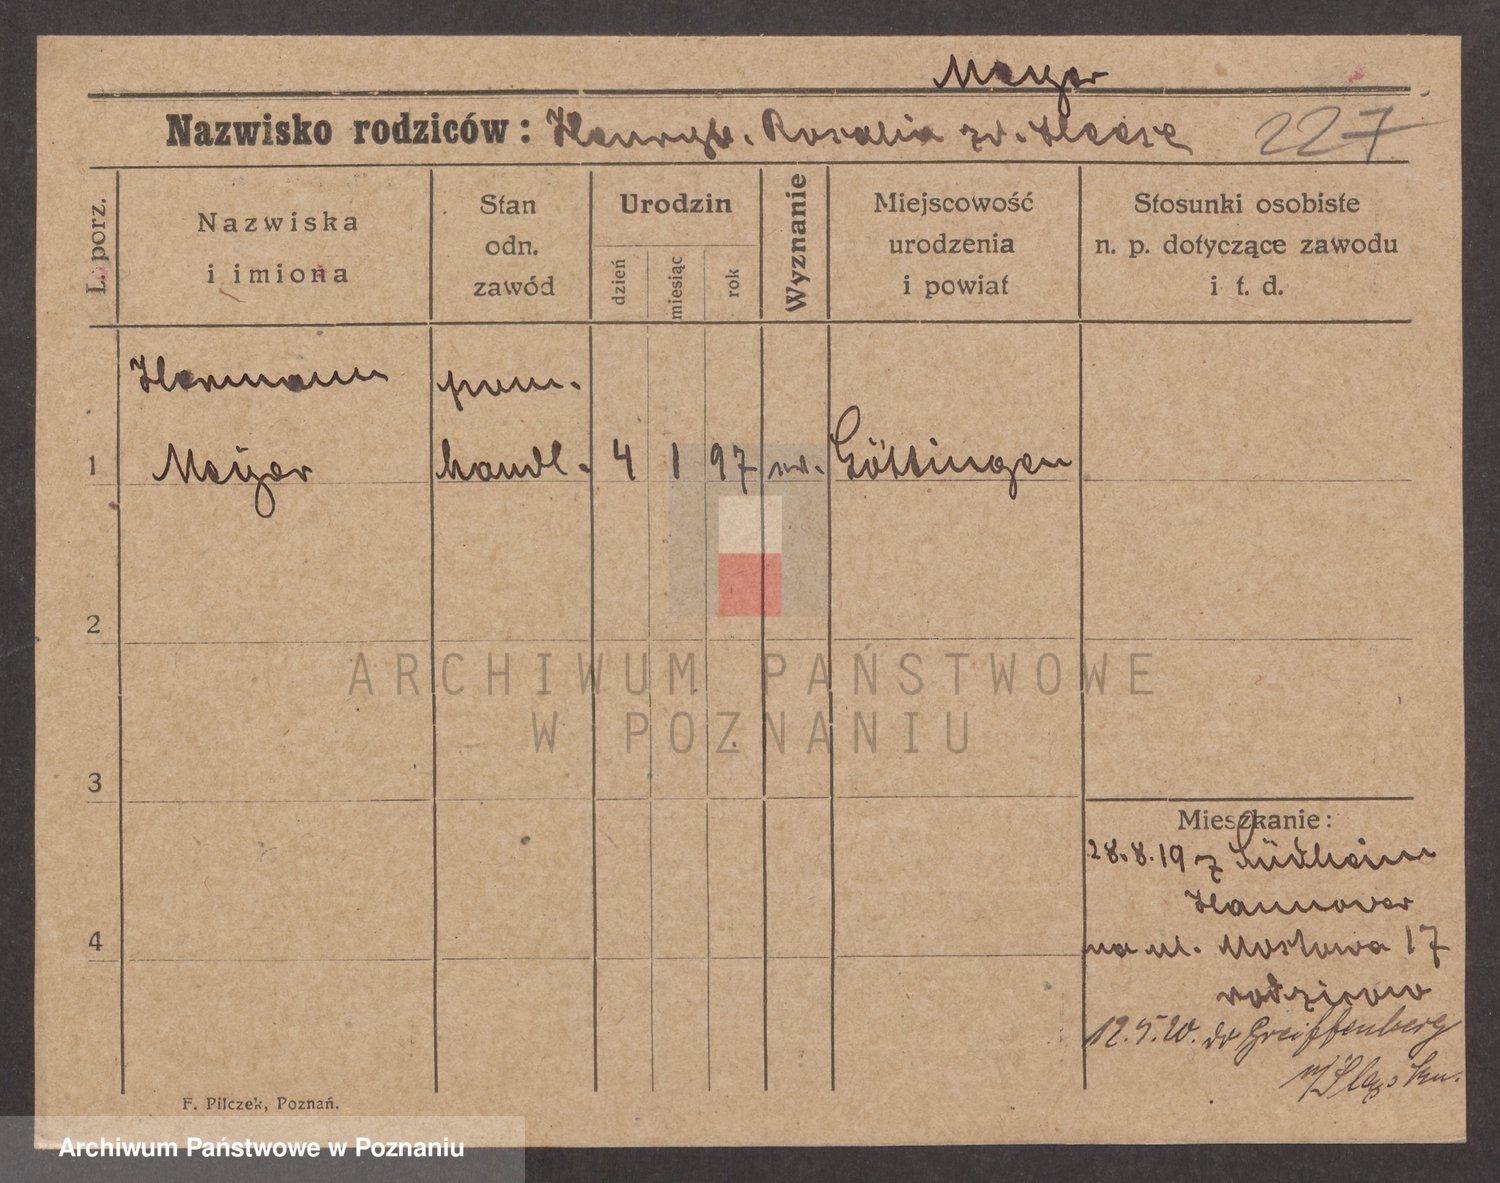 Meyer
Nazwisko rodziców: Henryk. Rosalia zd. Haase 227
L. porz.
Nazwiska
i imiona
Stan
odn.
zawód
Urodzin
dzień
miesiąc
rok
Wyznanie
Miejscowość
urodzenia
i powiat
Stosunki osobiste
n. p. dotyczące zawodu
i t. d.
Hermann pom.
1 Meyer handl. 4 1 97 Göttingen
2
ARCHIWUM PAŃSTWOWE
W POZNANIU
3
Mieszkanie:
28.8.19 z
Hannover
4
na ul. Mostowa 17
rodziców
12.5.20. do Greiffenberg
n/Śląsku.
F. Pilczek, Poznań.
Archiwum Państwowe w Poznaniu